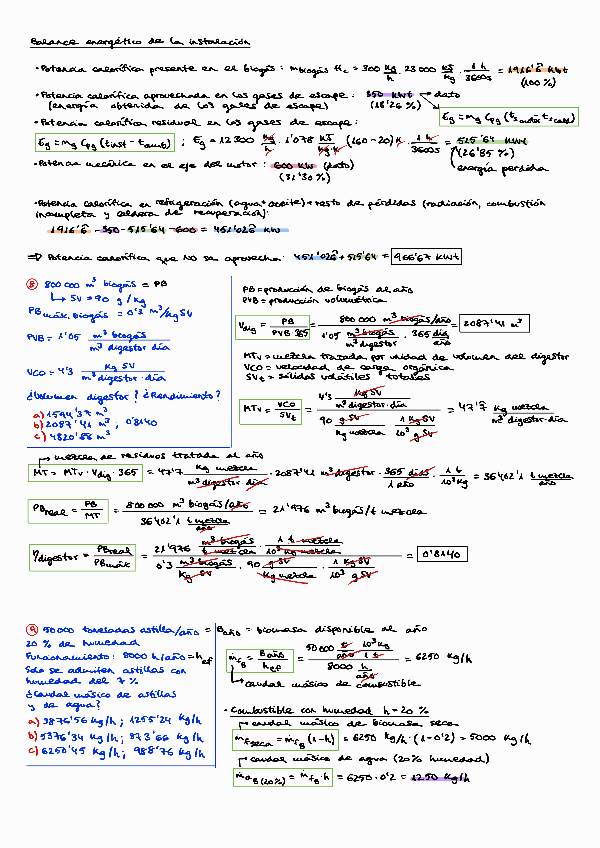 Balance energético de la instalación
• Potencia calorífica presente en el biogás : ṁbiogás Hc = 300 Kg/h · 23 000 KJ/Kg · 1 h/3600s = 1916'6̂ KWt (100 %)
• Potencia calorífica aprovechada en los gases de escape : 350 KWt → dato
(energía obtenida de los gases de escape) (18'26 %)
Ėg = ṁg Cpg (tsmotor - tscald)
• Potencia calorífica residual en los gases de escape :
Ėg = ṁg Cpg (tinst - tamb) ; Ėg = 12300 Kg/h · 1'078 KJ/Kg·K · (160-20) K · 1 h/3600s = 515'64 KWt (26'85 %)
energía perdida
• Potencia mecánica en el eje del motor : 600 KW (dato)
(31'30 %)
• Potencia calorífica en refrigeración (agua + aceite) + resto de pérdidas (radiación, combustión
incompleta y caldera de recuperación):
1916'6̂ - 350 - 515'64 - 600 = 451'026̂ KW
⇒ Potencia calorífica que no se aprovecha: 451'026̂ + 515'64 = 966'67 KWt
8 800 000 m³ biogás = PB
↳ SV = 90 g/Kg
PBmáx.biogás = 0'3 m³/Kg SV
PVB = 1'05 m³ biogás / m³ digestor día
VCO = 4'3 Kg SV / m³ digestor · día
¿Volumen digestor? ¿Rendimiento?
a) 1594'37 m³
b) 2087'41 m³ ; 0'8140
c) 4820'88 m³
PB = producción de biogás al año
PVB = producción volumétrica
Vdig = PB / PVB·365 = 800 000 m³ biogás/año / 1'05 m³ biogás/m³ digestor día · 365 día/año = 2087'41 m³
MTv = mezcla tratada por unidad de volumen del digestor
VCO = velocidad de carga orgánica
SVt = sólidos volátiles totales
MTv = VCO / SVt = 4'3 Kg SV/m³ digestor·día / 90 g SV/Kg mezcla · 1 Kg SV/10³ g SV = 47'7̂ Kg mezcla / m³ digestor·día
→ mezcla de residuos tratada al año
MT = MTv · Vdig · 365 = 47'7̂ Kg mezcla / m³ digestor día · 2087'41 m³ digestor · 365 días / 1 año · 1 t / 10³ Kg = 36402'1 t mezcla / año
PBreal = PB / MT = 800 000 m³ biogás/año / 36402'1 t mezcla/año = 21'976 m³ biogás/t mezcla
ηdigestor = PBreal / PBmáx = 21'976 m³ biogás/t mezcla · 1 t mezcla/10³ Kg mezcla / 0'3 m³ biogás/Kg SV · 90 g SV/Kg mezcla · 1 Kg SV/10³ g SV = 0'8140
9 50 000 toneladas astilla/año = Baño = biomasa disponible al año
20 % de humedad
Funcionamiento: 8000 h/año = hef
Solo se admiten astillas con
humedad del 7 %
¿Caudal másico de astillas
y de agua?
a) 3876'56 Kg/h ; 1255'24 Kg/h
b) 5376'34 Kg/h ; 873'66 Kg/h
c) 6250'45 Kg/h ; 988'76 Kg/h
ṁf8 = Baño / hef = 50000 t/año · 10³ Kg/1 t / 8000 h/año = 6250 Kg/h
↳ caudal másico de combustible
• Combustible con humedad h = 20 %
→ caudal másico de biomasa seca
ṁfseca = ṁf8 (1-h) = 6250 Kg/h · (1-0'2) = 5000 Kg/h
→ caudal másico de agua (20% humedad)
ṁa8(20%) = ṁf8 · h = 6250 · 0'2 = 1250 Kg/h